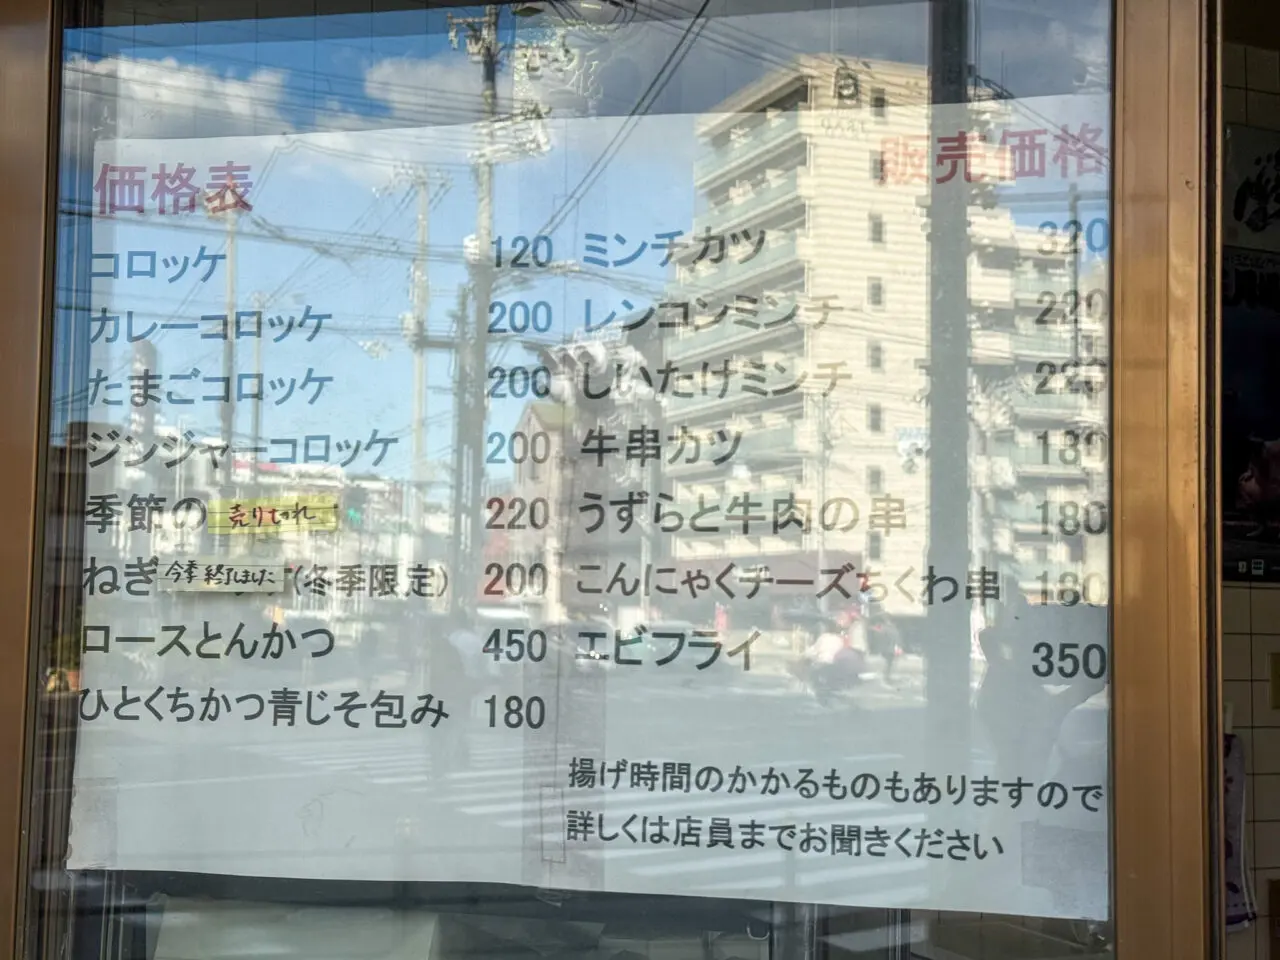 価格表
コロッケ 120
カレーコロッケ 200
たまごコロッケ 200
ジンジャーコロッケ 200
季節の 売り切れ 220
ねぎ 今季終了しました (冬季限定) 200
ロースとんかつ 450
ひとくちかつ青じそ包み 180
販売価格
ミンチカツ 320
レンコンミンチ 220
しいたけミンチ 220
牛串カツ 180
うずらと牛肉の串 180
こんにゃくチーズちくわ串 180
エビフライ 350
揚げ時間のかかるものもありますので
詳しくは店員までお聞きください